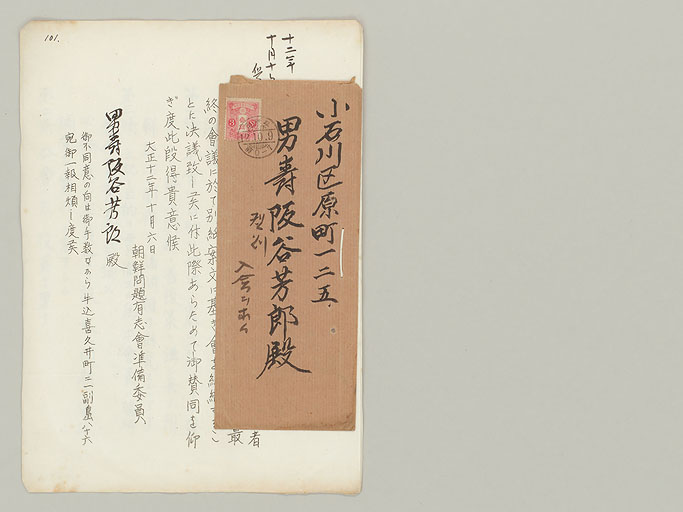 101.
十二年
十月十
小石川区原町一二五
男爵阪谷芳郎殿
入会
12.10.9
者
最
終の會議に於て別紙案文に基き會を組織するこ
とに決議致し候に付此際あらためて御賛同を仰
ぎ度此段得貴意候
大正十二年十月六日
朝鮮問題有志會準備委員
男爵阪谷芳郎殿
御不同意の向は御手数ながら牛込喜久井町二一副島八十六
宛御一報相煩し度候